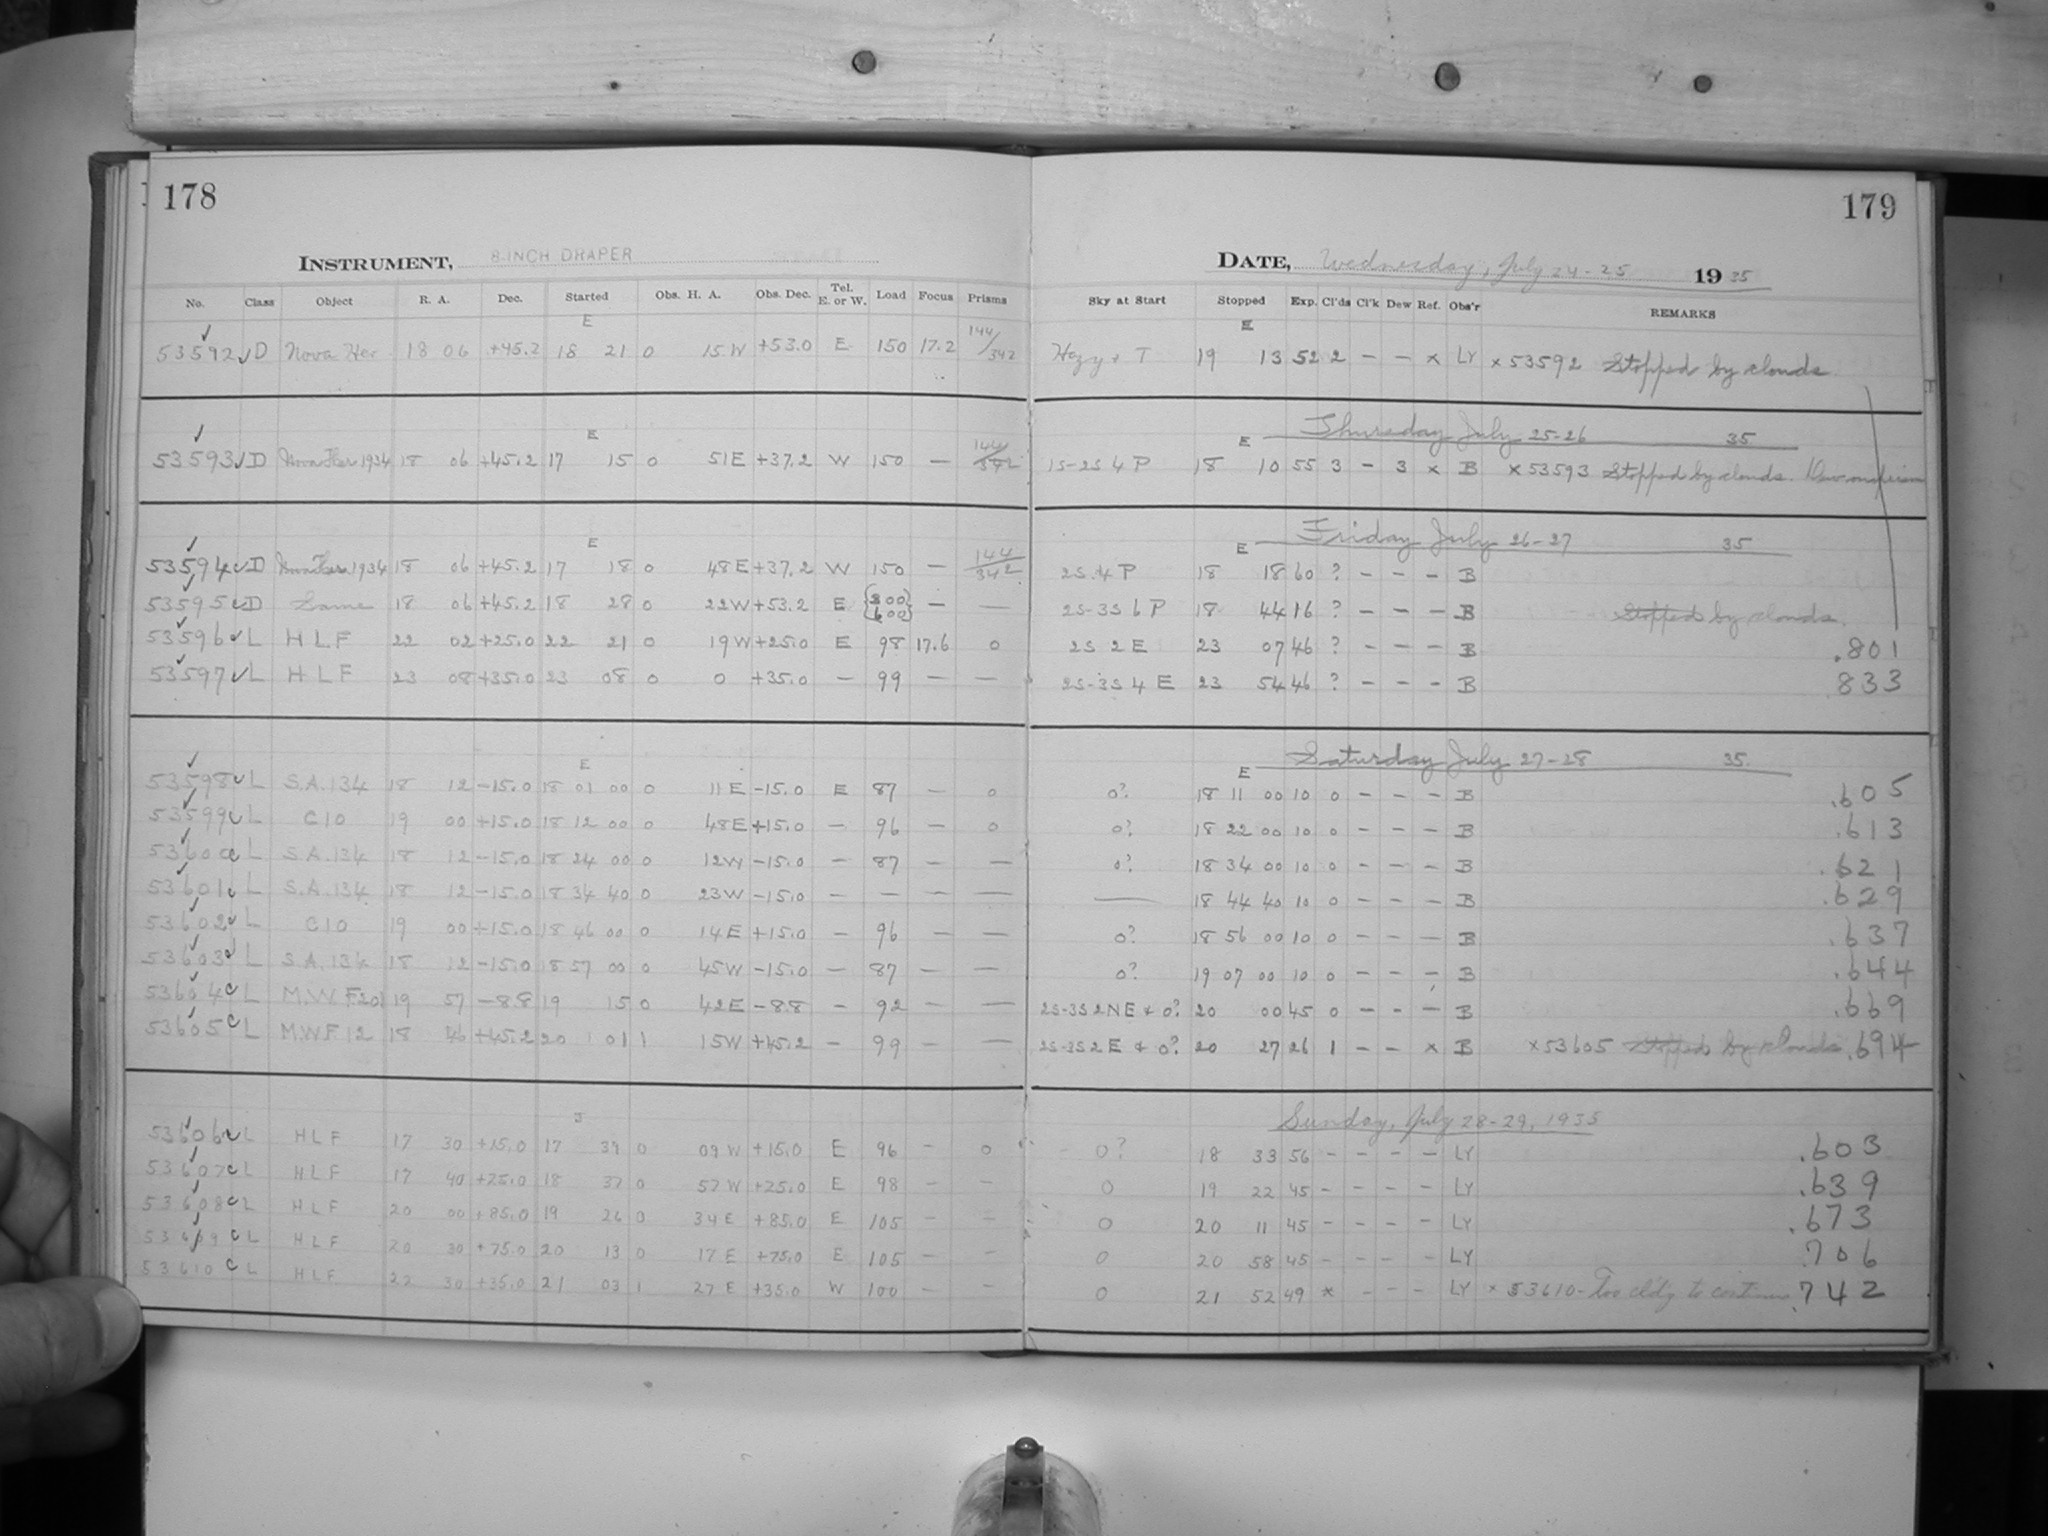 178
179
INSTRUMENT, 8-INCH DRAPER
DATE, Wednesday, July 24-25 1935
No. Class Object R. A. Dec. Started Obs. H. A. Obs. Dec. Tel. E. or W. Load Focus Prisms Sky at Start Stopped Exp. Cl'ds Cl'k Dew Ref. Obs'r REMARKS
E E
53592 ✓ D Nova Her 18 06 +45.2 18 21 0 15 W +53.0 E 150 17.2 144/342 Hazy + T 19 13 52 2 – – x LY x 53592 Stopped by clouds.
Thursday July 25-26 35
E E
53593 ✓ D Nova Her 1934 18 06 +45.2 17 15 0 51 E +37.2 W 150 – 144/342 1S-2S 4 P 18 10 55 3 – 3 x B x 53593 Stopped by clouds. Dew on prism
Friday July 26-27 35
E E
53594 ✓ D Nova Her 1934 18 06 +45.2 17 18 0 48 E +37.2 W 150 – 144/342 2S.4 P 18 18 60 ? – – – B
53595 ✓ D Same 18 06 +45.2 18 28 0 22 W +53.2 E {300 600} – — 2S-3S 6 P 18 44 16 ? – – – B Stopped by clouds.
53596 ✓ L H L F 22 02 +25.0 22 21 0 19 W +25.0 E 98 17.6 0 2S 2 E 23 07 46 ? – – – B .801
53597 ✓ L H L F 23 08 +35.0 23 08 0 0 +35.0 – 99 – — 2S-3S 4 E 23 54 46 ? – – – B 833
Saturday July 27-28 35.
E E
53598 ✓ L S.A. 134 18 12 -15.0 18 01 00 0 11 E -15.0 E 87 – 0 0? 18 11 00 10 0 – – – B .605
53599 ✓ L C 10 19 00 +15.0 18 12 00 0 48 E +15.0 – 96 – 0 0? 18 22 00 10 0 – – – B .613
53600 ✓ L S.A. 134 18 12 -15.0 18 24 00 0 12 W -15.0 – 87 – — 0? 18 34 00 10 0 – – – B .621
53601 ✓ L S.A. 134 18 12 -15.0 18 34 40 0 23 W -15.0 – — – — — 18 44 40 10 0 – – – B .629
53602 ✓ L C 10 19 00 +15.0 18 46 00 0 14 E +15.0 – 96 – — 0? 18 56 00 10 0 – – – B .637
53603 ✓ L S.A. 134 18 12 -15.0 18 57 00 0 45 W -15.0 – 87 – — 0? 19 07 00 10 0 – – – B .644
53604 ✓ L M.W.F 201 19 57 -8.8 19 15 0 42 E -8.8 – 92 – — 2S-3S 2 NE + 0? 20 00 45 0 – – – B .669
53605 ✓ L M.W.F 12 18 46 +45.2 20 01 1 15 W +45.2 – 99 – — 2S-3S 2 E + 0? 20 27 26 1 – – x B x 53605 Stopped by clouds .694
Sunday, July 28-29, 1935
J
53606 ✓ L H L F 17 30 +15.0 17 39 0 09 W +15.0 E 96 – 0 0? 18 33 56 – – – – LY .603
53607 ✓ L H L F 17 40 +25.0 18 37 0 57 W +25.0 E 98 – – 0 19 22 45 – – – – LY .639
53608 ✓ L H L F 20 00 +85.0 19 26 0 34 E +85.0 E 105 – – 0 20 11 45 – – – – LY .673
53609 ✓ L H L F 20 30 +75.0 20 13 0 17 E +75.0 E 105 – – 0 20 58 45 – – – – LY 706
53610 ✓ L H L F 22 30 +35.0 21 03 1 27 E +35.0 W 100 – – 0 21 52 49 * – – – LY x 53610 - Too cl'dy to continue .742